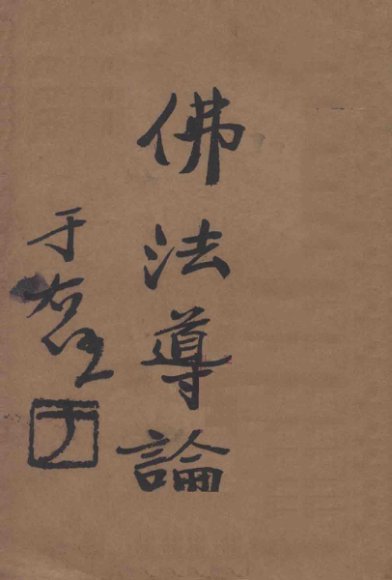 佛法導論
于右任
于